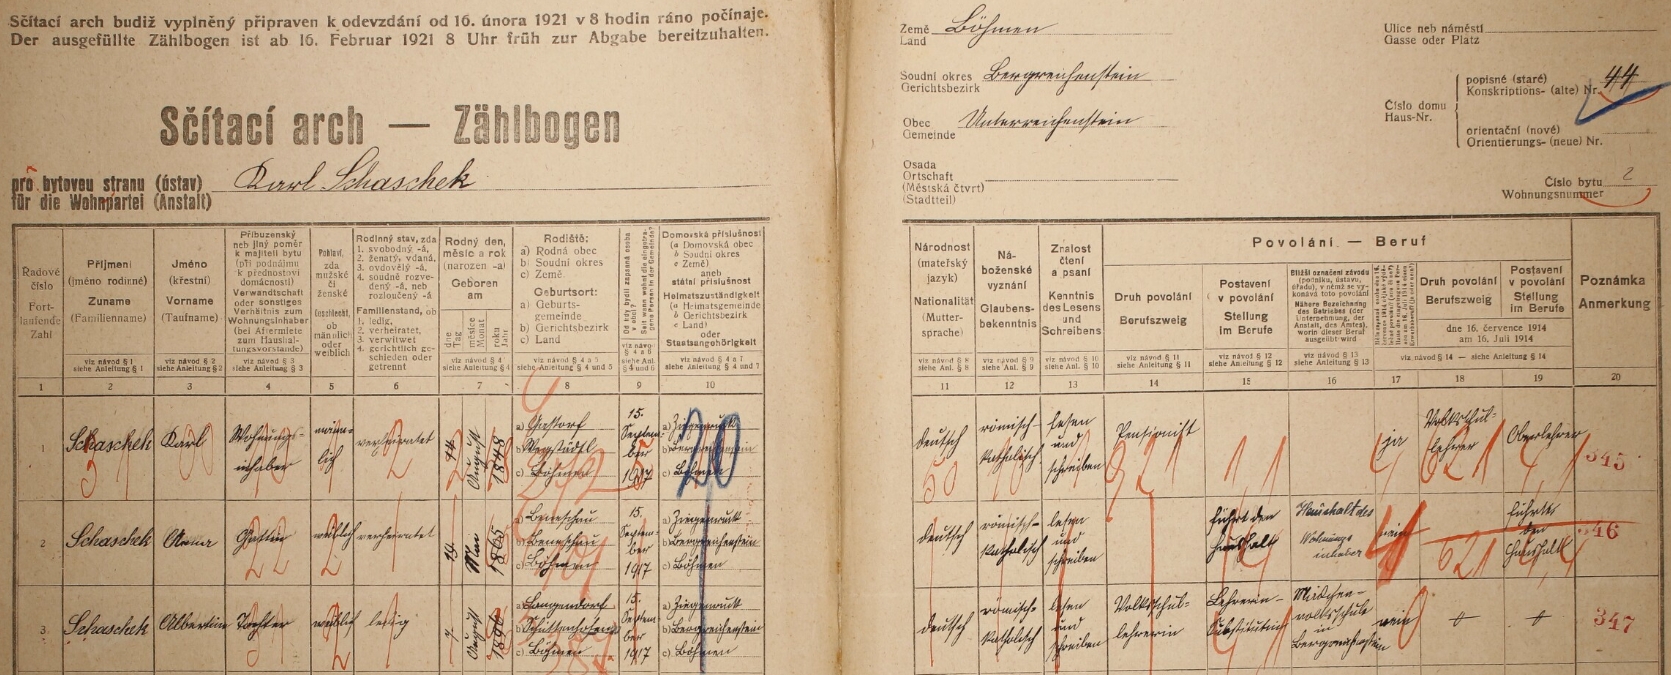 Sčítací arch budiž vyplněný připraven k odevzdání od 16. února 1921 v 8 hodin ráno počínaje.
Der ausgefüllte Zählbogen ist ab 16. Februar 1921 8 Uhr früh zur Abgabe bereitzuhalten.
Sčítací arch — Zählbogen
pro bytovou stranu (ústav)
für die Wohnpartei (Anstalt)
Karl Schaschek
Země
Land
Böhmen
Soudní okres
Gerichtsbezirk
Bergreichenstein
Obec
Gemeinde
Unterreichenstein
Osada
Ortschaft
(Městská čtvrt)
(Stadtteil)
Ulice neb náměstí
Gasse oder Platz
Číslo domu
Haus-Nr.
popisné (staré)
Konskriptions- (alte) Nr. 44
orientační (nové)
Orientierungs- (neue) Nr.
Číslo bytu 2
Wohnungsnummer
Řadové
číslo
Fort-
laufende
Zahl
Příjmení
(jméno rodinné)
Zuname
(Familienname)
viz návod § 1
siehe Anleitung § 1
Jméno
(křestní)
Vorname
(Taufname)
viz návod § 2
siehe Anleitung § 2
Příbuzenský
neb jiný poměr
k majiteli bytu
(při podnájmu
k přednostovi
domácnosti)
Verwandtschaft
oder sonstiges
Verhältnis zum
Wohnungsinhaber
(bei Aftermiete
zum Haushal-
tungsvorstande)
viz návod § 3
siehe Anleitung § 3
Pohlaví,
zda
mužské
či
ženské
Geschlecht,
ob
männlich
oder
weiblich
Rodinný stav, zda
1. svobodný -á,
2. ženatý, vdaná,
3. ovdovělý -á,
4. soudně rozve-
dený -á, neb
rozloučený -á
Familienstand, ob
1. ledig,
2. verheiratet,
3. verwitwet
4. gerichtlich ge-
schieden oder
getrennt
Rodný den,
měsíc a rok
(narozen -a)
Geboren
am
dne
Tag
měsíce
Monat
roku
Jahr
viz návod § 4
siehe Anleitung § 4
Rodiště:
a) Rodná obec
b) Soudní okres
c) Země
Geburtsort:
a) Geburts-
gemeinde
b) Gerichtsbezirk
c) Land
viz návod § 4 a 5
siehe Anleitung § 4 und 5
Domovská příslušnost
(a Domovská obec
b Soudní okres
c Země)
aneb
státní příslušnost
Heimatszuständigkeit
(a Heimatsgemeinde
b Gerichtsbezirk
c Land)
oder
Staatsangehörigkeit
viz návod § 4 a 7
siehe Anleitung § 4 und 7
Národnost
(mateřský
jazyk)
Nationalität
(Mutter-
sprache)
viz návod § 8
siehe Anl. § 8
Ná-
boženské
vyznání
Glaubens-
bekenntnis
viz návod § 9
siehe Anl. § 9
Znalost
čtení
a psaní
Kenntnis
des Lesens
und
Schreibens
viz návod § 10
siehe Anl. § 10
Povolání — Beruf
Druh povolání
Berufszweig
viz návod § 11
siehe Anleitung § 11
Postavení
v povolání
Stellung
im Berufe
viz návod § 12
siehe Anleitung § 12
viz návod § 13
siehe Anleitung § 13
Druh povolání
Berufszweig
Postavení
v povolání
Stellung
im Berufe
dne 16. července 1914
am 16. Juli 1914
viz návod § 14 — siehe Anleitung § 14
Poznámka
Anmerkung
1 2 3 4 5 6 7 8 9 10 11 12 13 14 15 16 17 18 19 20
1 Schaschek Karl Wohnungs-
inhaber
männ-
lich
verheiratet
14. August 1848
a) Gastorf
b) Wegstädtl
c) Böhmen
15.
Septem-
ber
1917
a) Ziegenruck
b) Bergreichenstein
c) Böhmen
deutsch
römisch-
katholisch
lesen
und
schreiben
Pensionist
ja
Volksschul-
lehrer
Oberlehrer
345
2 Schaschek Anna Gattin weiblich verheiratet
19. Mai 1865
a) Beneschau
b) Beneschau
c) Böhmen
15.
Septem-
ber
1917
a) Ziegenruck
b) Bergreichenstein
c) Böhmen
deutsch
römisch-
katholisch
lesen
und
schreiben
führt den
Haushalt
Haushalt des
Wohnungs-
inhaber
nein
führte
den
Haushalt
346
3 Schaschek Albertine Tochter weiblich ledig
7. August 1896
a) Langendorf
b) Schüttenhofen
c) Böhmen
15.
Septem-
ber
1917
a) Ziegenruck
b) Bergreichenstein
c) Böhmen
deutsch
römisch-
katholisch
lesen
und
schreiben
Volksschul-
lehrerin
Lehrerin-
Substitutin
Mädchen-
volksschule
in
Bergreichenstein
nein
347